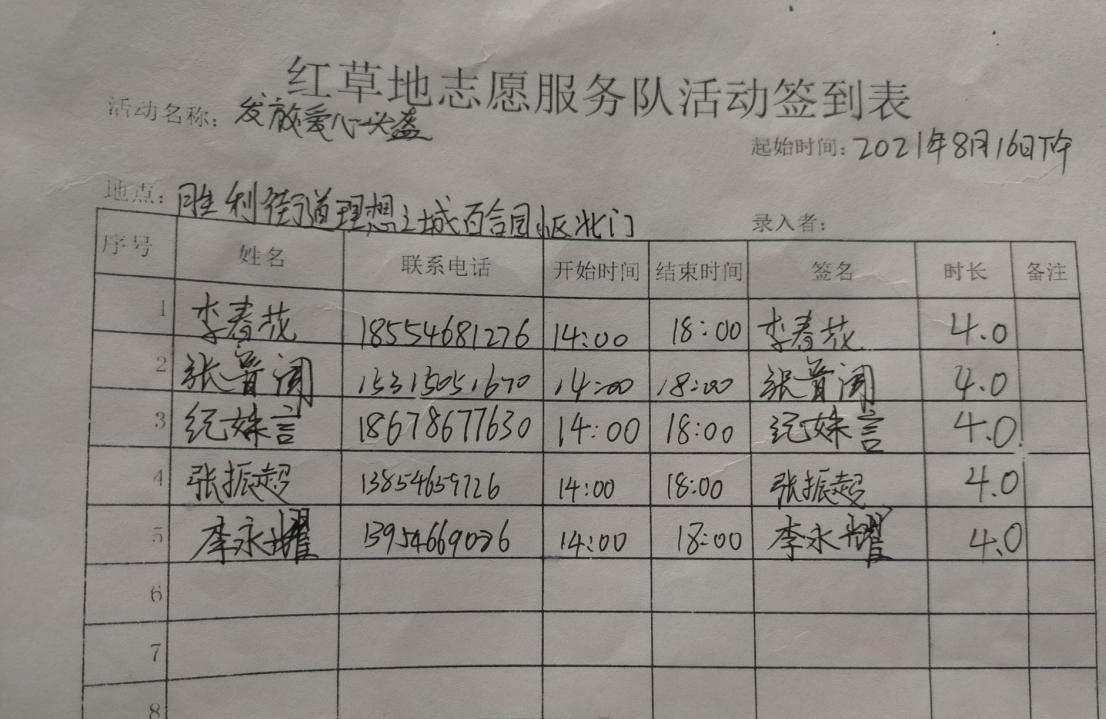 红草地志愿服务队活动签到表
活动名称：发放爱心头盔
起始时间：2021年8月16日下午
地点：胜利街道理想之城百合园小区北门
录入者：
序号 姓名 联系电话 开始时间 结束时间 签名 时长 备注
1 李春花 18554681276 14:00 18:00 李春花 4.0
2 张 14:00 18:00 张 4.0
3 纪妹言 18678677630 14:00 18:00 纪妹言 4.0
4 张振超 13854659726 14:00 18:00 张振超 4.0
5 李永耀 14:00 18:00 李永耀 4.0
6
7
8